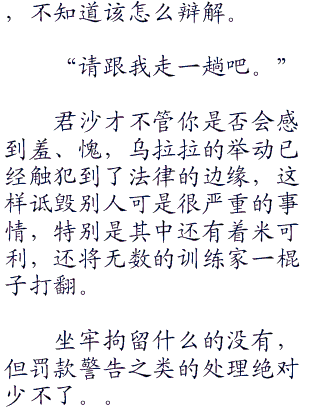 ，不知道该怎么辩解。
“请跟我走一趟吧。”
君沙才不管你是否会感
到羞、愧，乌拉拉的举动已
经触犯到了法律的边缘，这
样诋毁别人可是很严重的事
情，特别是其中还有着米可
利，还将无数的训练家一棍
子打翻。
坐牢拘留什么的没有，
但罚款警告之类的处理绝对
少不了。。